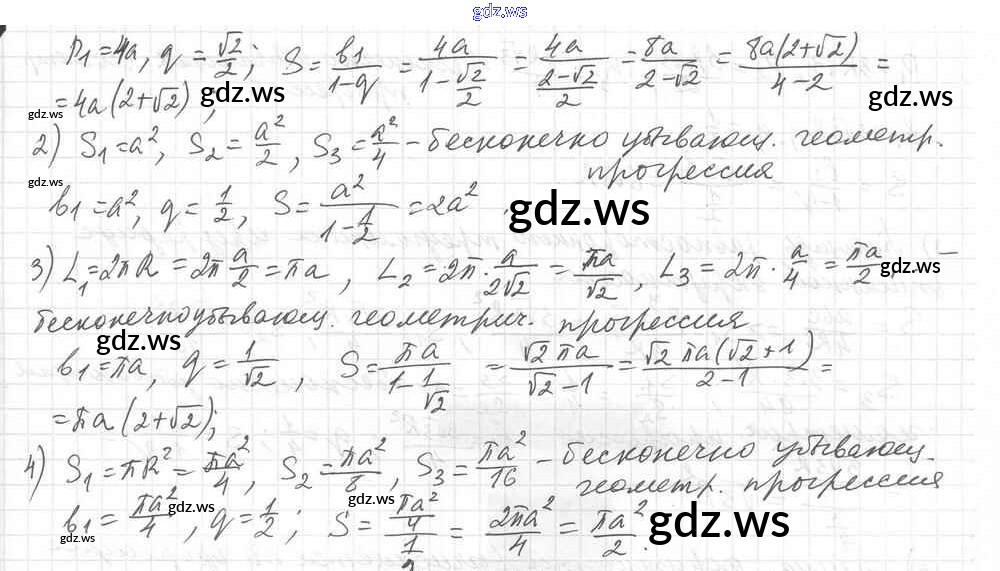 gdz.ws
P₁ = 4a, q = √2/2; S = b₁/(1-q) = 4a/(1-√2/2) = 4a/((2-√2)/2) = 8a/(2-√2) = 8a(2+√2)/(4-2) =
gdz.ws
gdz.ws
= 4a(2+√2);
gdz.ws
2) S₁ = a², S₂ = a²/2, S₃ = a²/4 - бесконечно убывающ. геометр.
gdz.ws
прогрессия
b₁ = a², q = 1/2, S = a²/(1-1/2) = 2a²
gdz.ws
3) L₁ = 2πR = 2π a/2 = πa, L₂ = 2π · a/(2√2) = πa/√2, L₃ = 2π · a/4 = πa/2 -
gdz.ws
бесконечноубывающ. геометрич. прогрессия
gdz.ws
b₁ = πa, q = 1/√2, S = πa/(1-1/√2) = √2 πa/(√2-1) = √2 πa(√2+1)/(2-1) =
= πa(2+√2);
4) S₁ = πR² = πa²/4, S₂ = πa²/8, S₃ = πa²/16 - бесконечно убывающ.
gdz.ws
геометр. прогрессия
gdz.ws
b₁ = πa²/4, q = 1/2; S = (πa²/4)/(1/2) = 2πa²/4 = πa²/2.
gdz.ws
gdz.ws